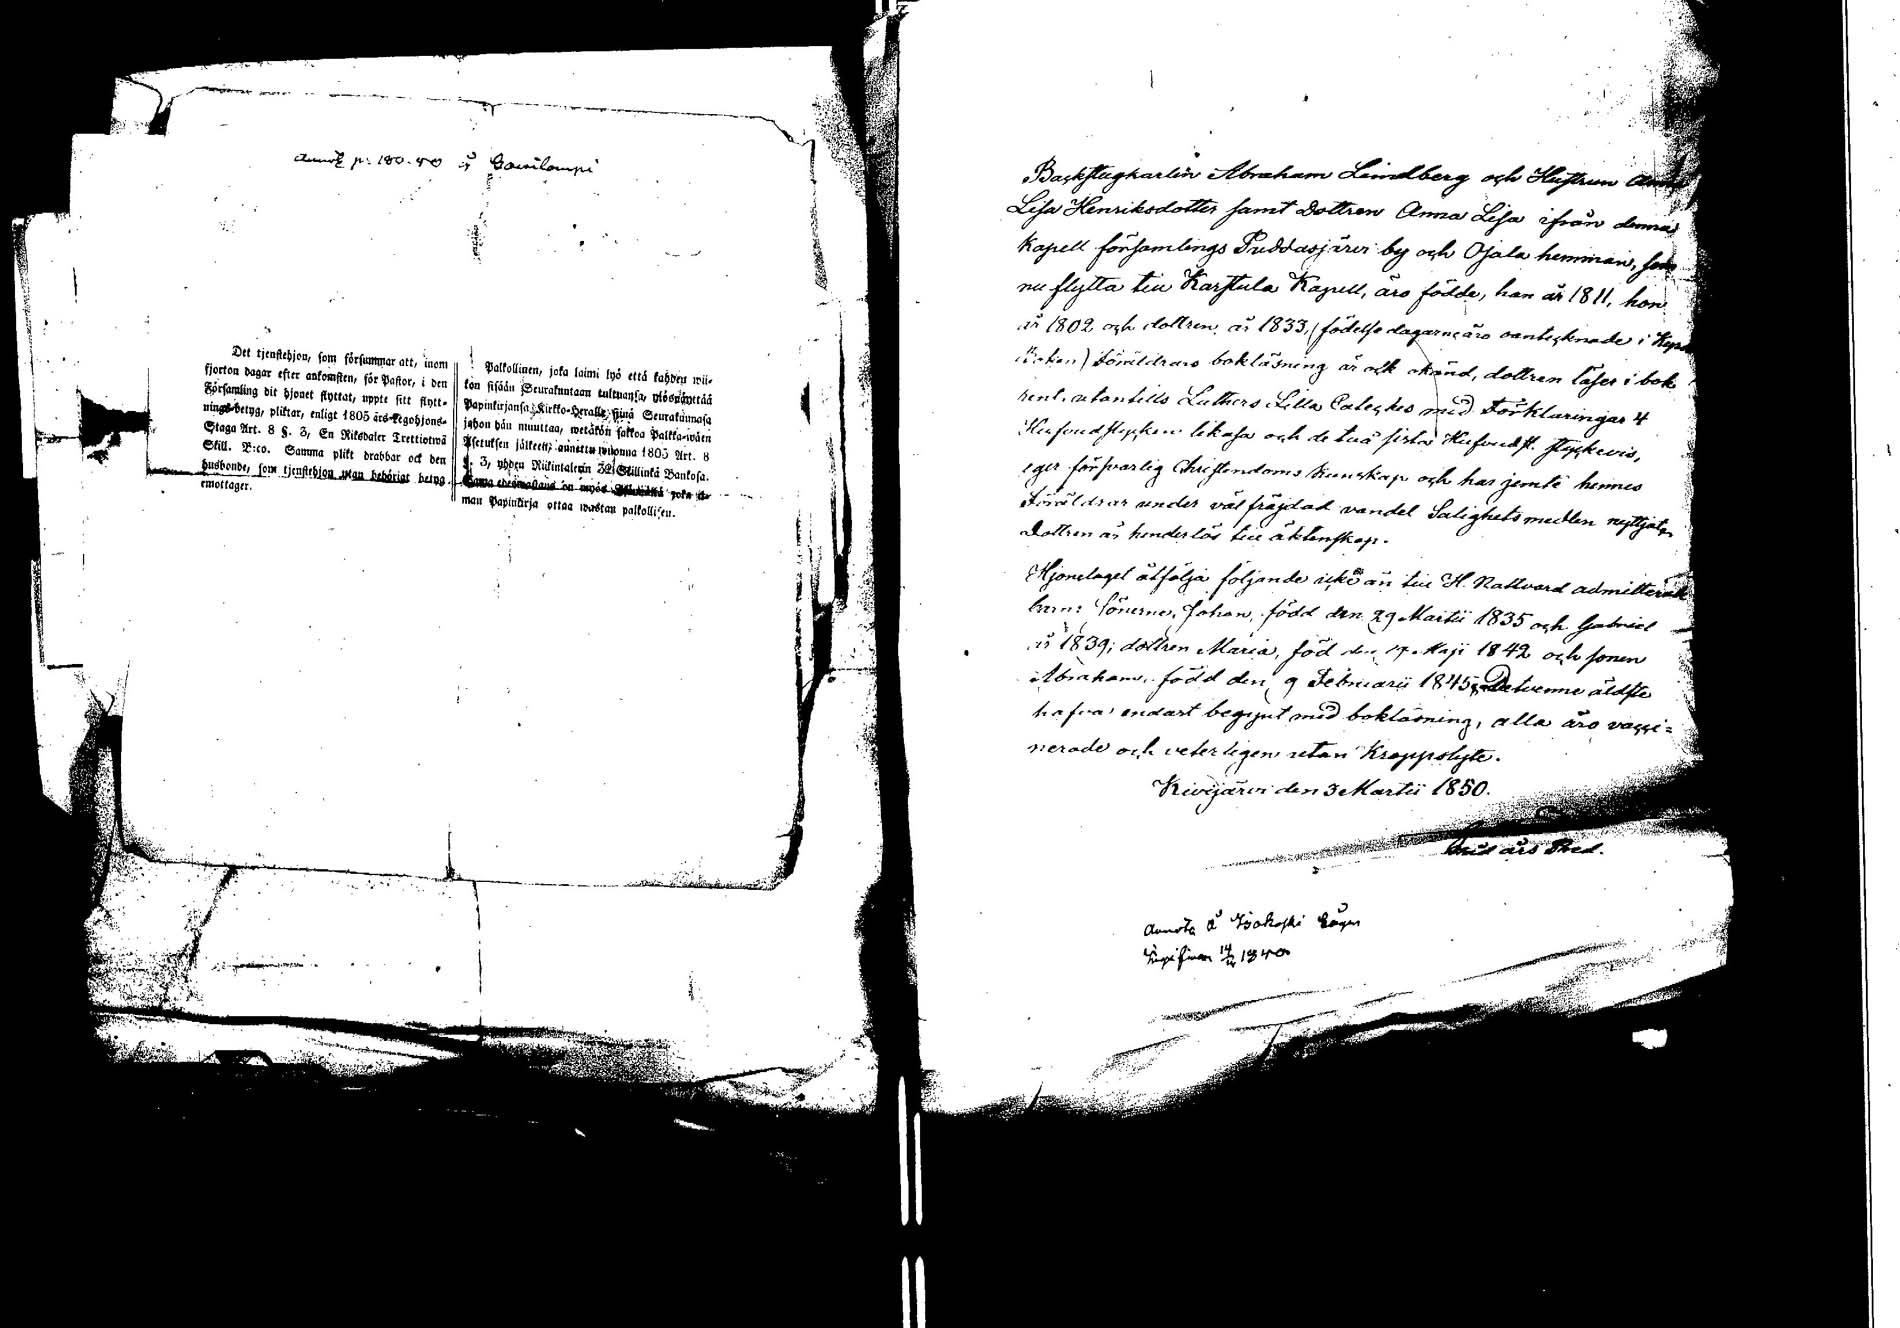 Annot p: 180.50 å
Det tjenstehjon, som försummar att, inom
fjorton dagar efter ankomsten, för Pastor, i den
Församling dit hjonet flyttat, uppte sitt flytt-
nings-betyg, pliktar, enligt 1805 års Legohjons-
Staga Art. 8 §. 3, En Riksdaler Trettiotwå
Skill. B:co. Samma plikt drabbar ock den
husbonde, som tjenstehjon utan behörigt betyg
emottager.
Palkollinen, joka laimi lyö että kahden wii-
kon sisään Seurakuntaan tultuansa, ylösnäyttää
Papinkirjansa Kirkko-Herralle siinä Seurakunnasa
johon hän muuttaa, wetäkön sakkoa Palkka-wäen
Asetuksen jälkeen, annettu wuonna 1805 Art. 8
§. 3, yhden Riikintalerin 32 Skillinkä Bankosa.
Sama edeswastaus on myös Isännällä joka il-
man Papinkirja ottaa wastan palkollisen.
Backstugkarlen Abraham Lindberg och Hustrun Anna
Lisa Henriksdotter samt Dottren Anna Lisa ifrån denna
Kapell församlings Puddasjärvi by och Ojala hemman, som
nu flytta till Karstula Kapell, äro födde, han år 1811, hon
år 1802 och dottren år 1833, (födelse dagarne äro oantecknade i Kyrko
Boken) Föräldrars bokläsning är ock okänd, dottren läser i bok
rent, utantills Luthers Lilla Cateches med Förklaringar 4
Hufvudstycken likaså och de två sista Hufvudst. styckevis,
eger försvarlig Christendoms Kunskap och har jemte hennes
Föräldrar under väl fräjdad vandel Salighetsmedlen nyttjat,
Dottren är hinderlös till äktenskap.
Hjonelaget åtfölja följande icke än till H. Nattvard admitterade
barn: Sönerne, Johan, född den 29 Martii 1835 och Gabriel
år 1839; dottren Maria, föd den 17 Maji 1842 och sonen
Abraham, född den 9 Februarii 1845; De tvenne äldste
hafva endast begynt med bokläsning, alla äro vacci=
nerade och veterligen utan Kroppslyte.
Kivijärvi den 3 Martii 1850.
års Pred.
Annota å
1850